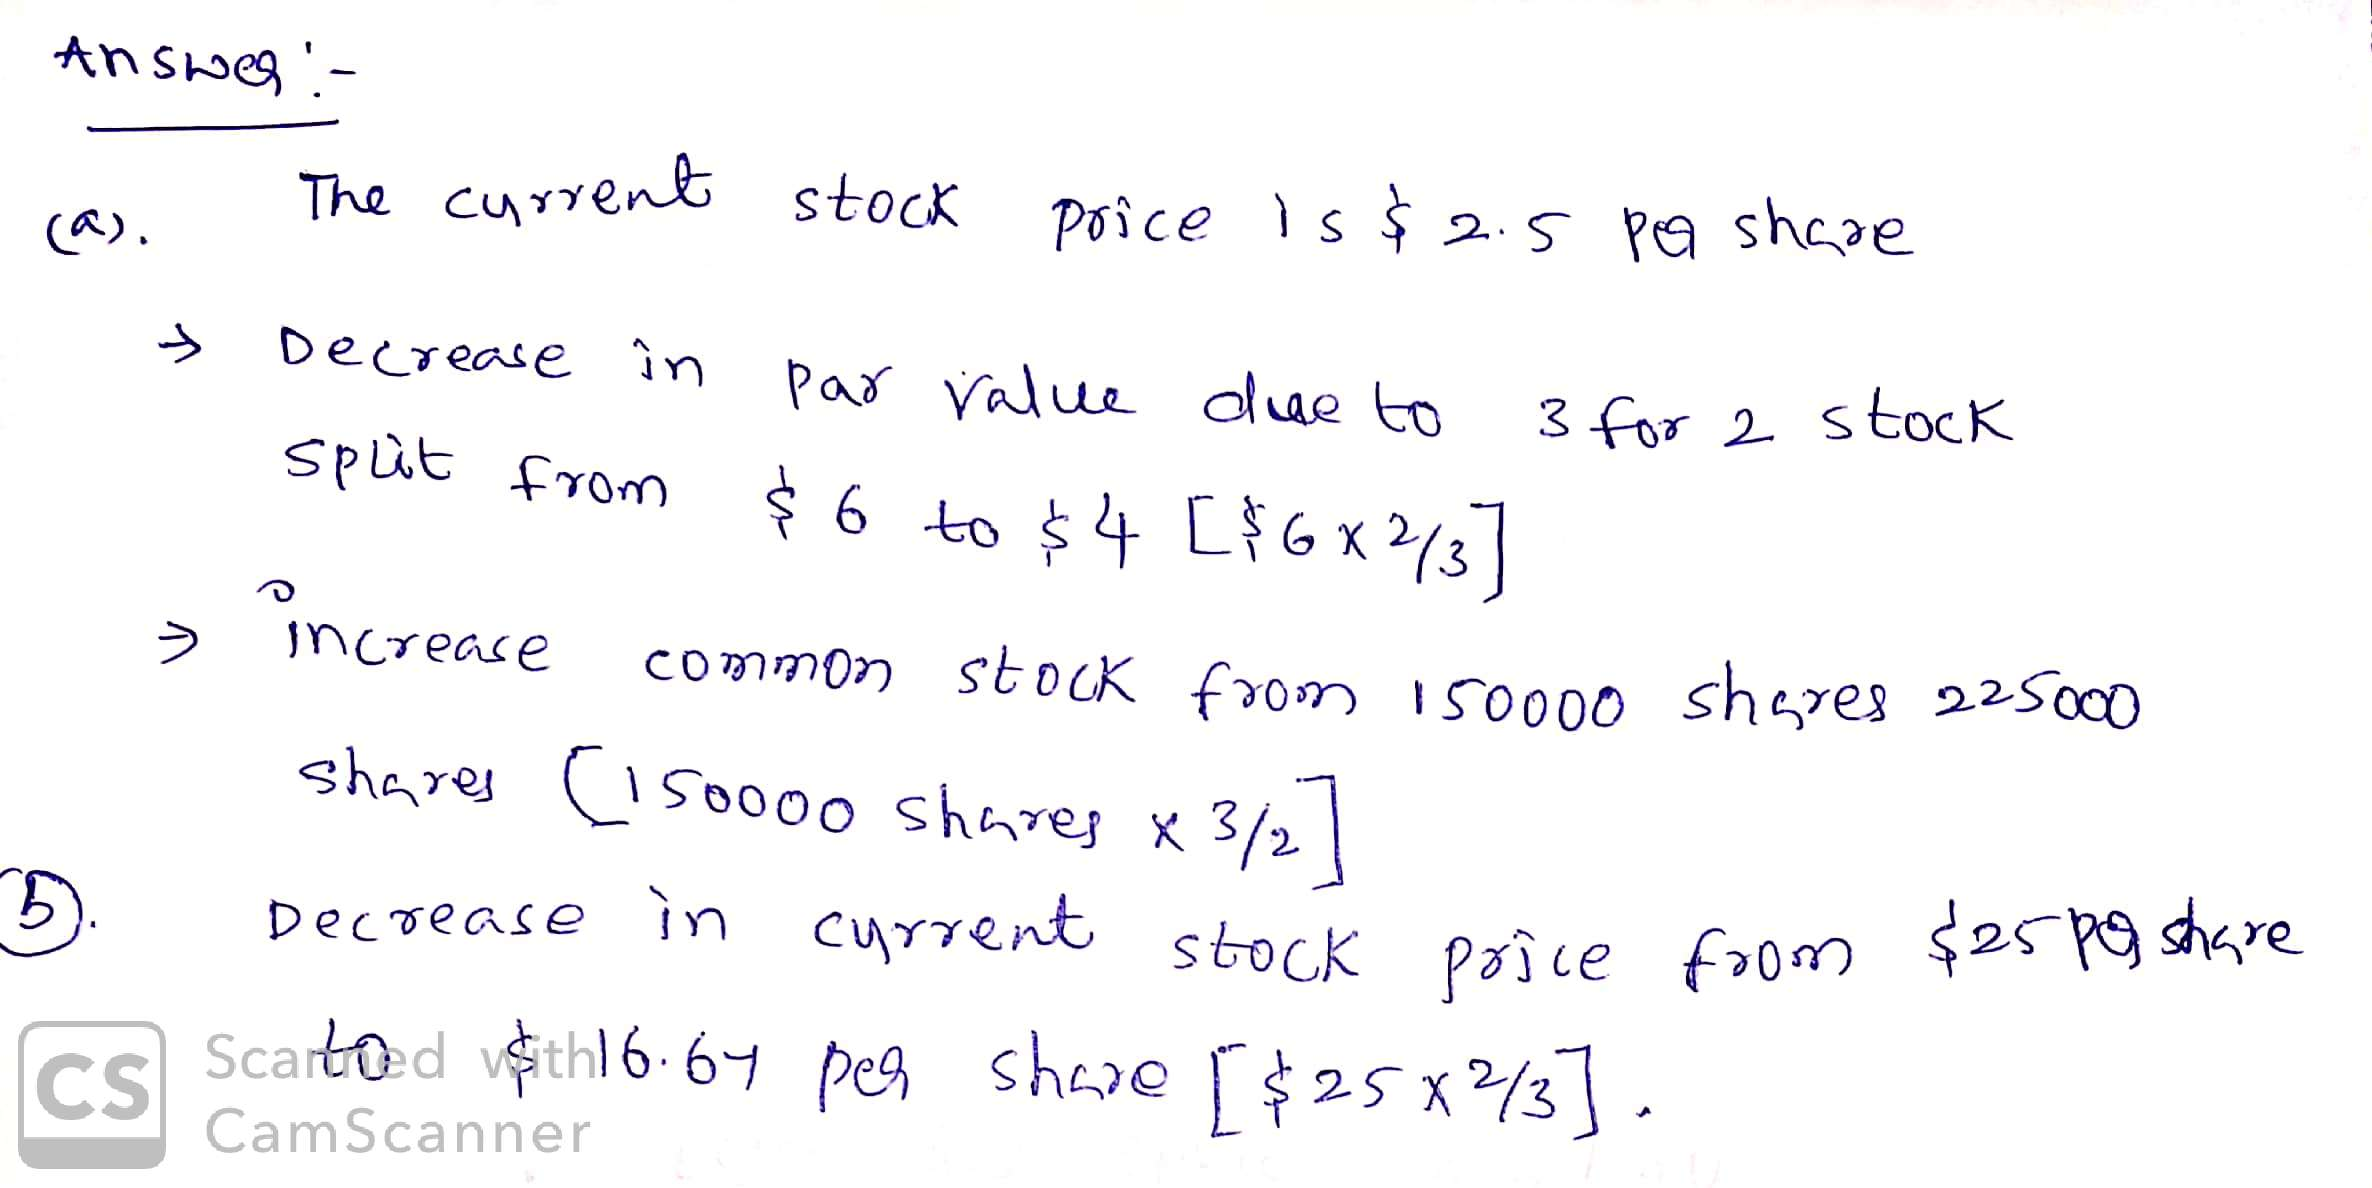 Answer :-
(a). The current stock price is $ 2.5 per share
→ Decrease in par value due to 3 for 2 stock
split from $ 6 to $ 4 [$6 x 2/3]
→ increase common stock from 150000 shares 225000
shares [150000 shares x 3/2]
(b). Decrease in current stock price from $25 per share
to $ 16.67 per share [$25 x 2/3].
CS Scanned with
CamScanner